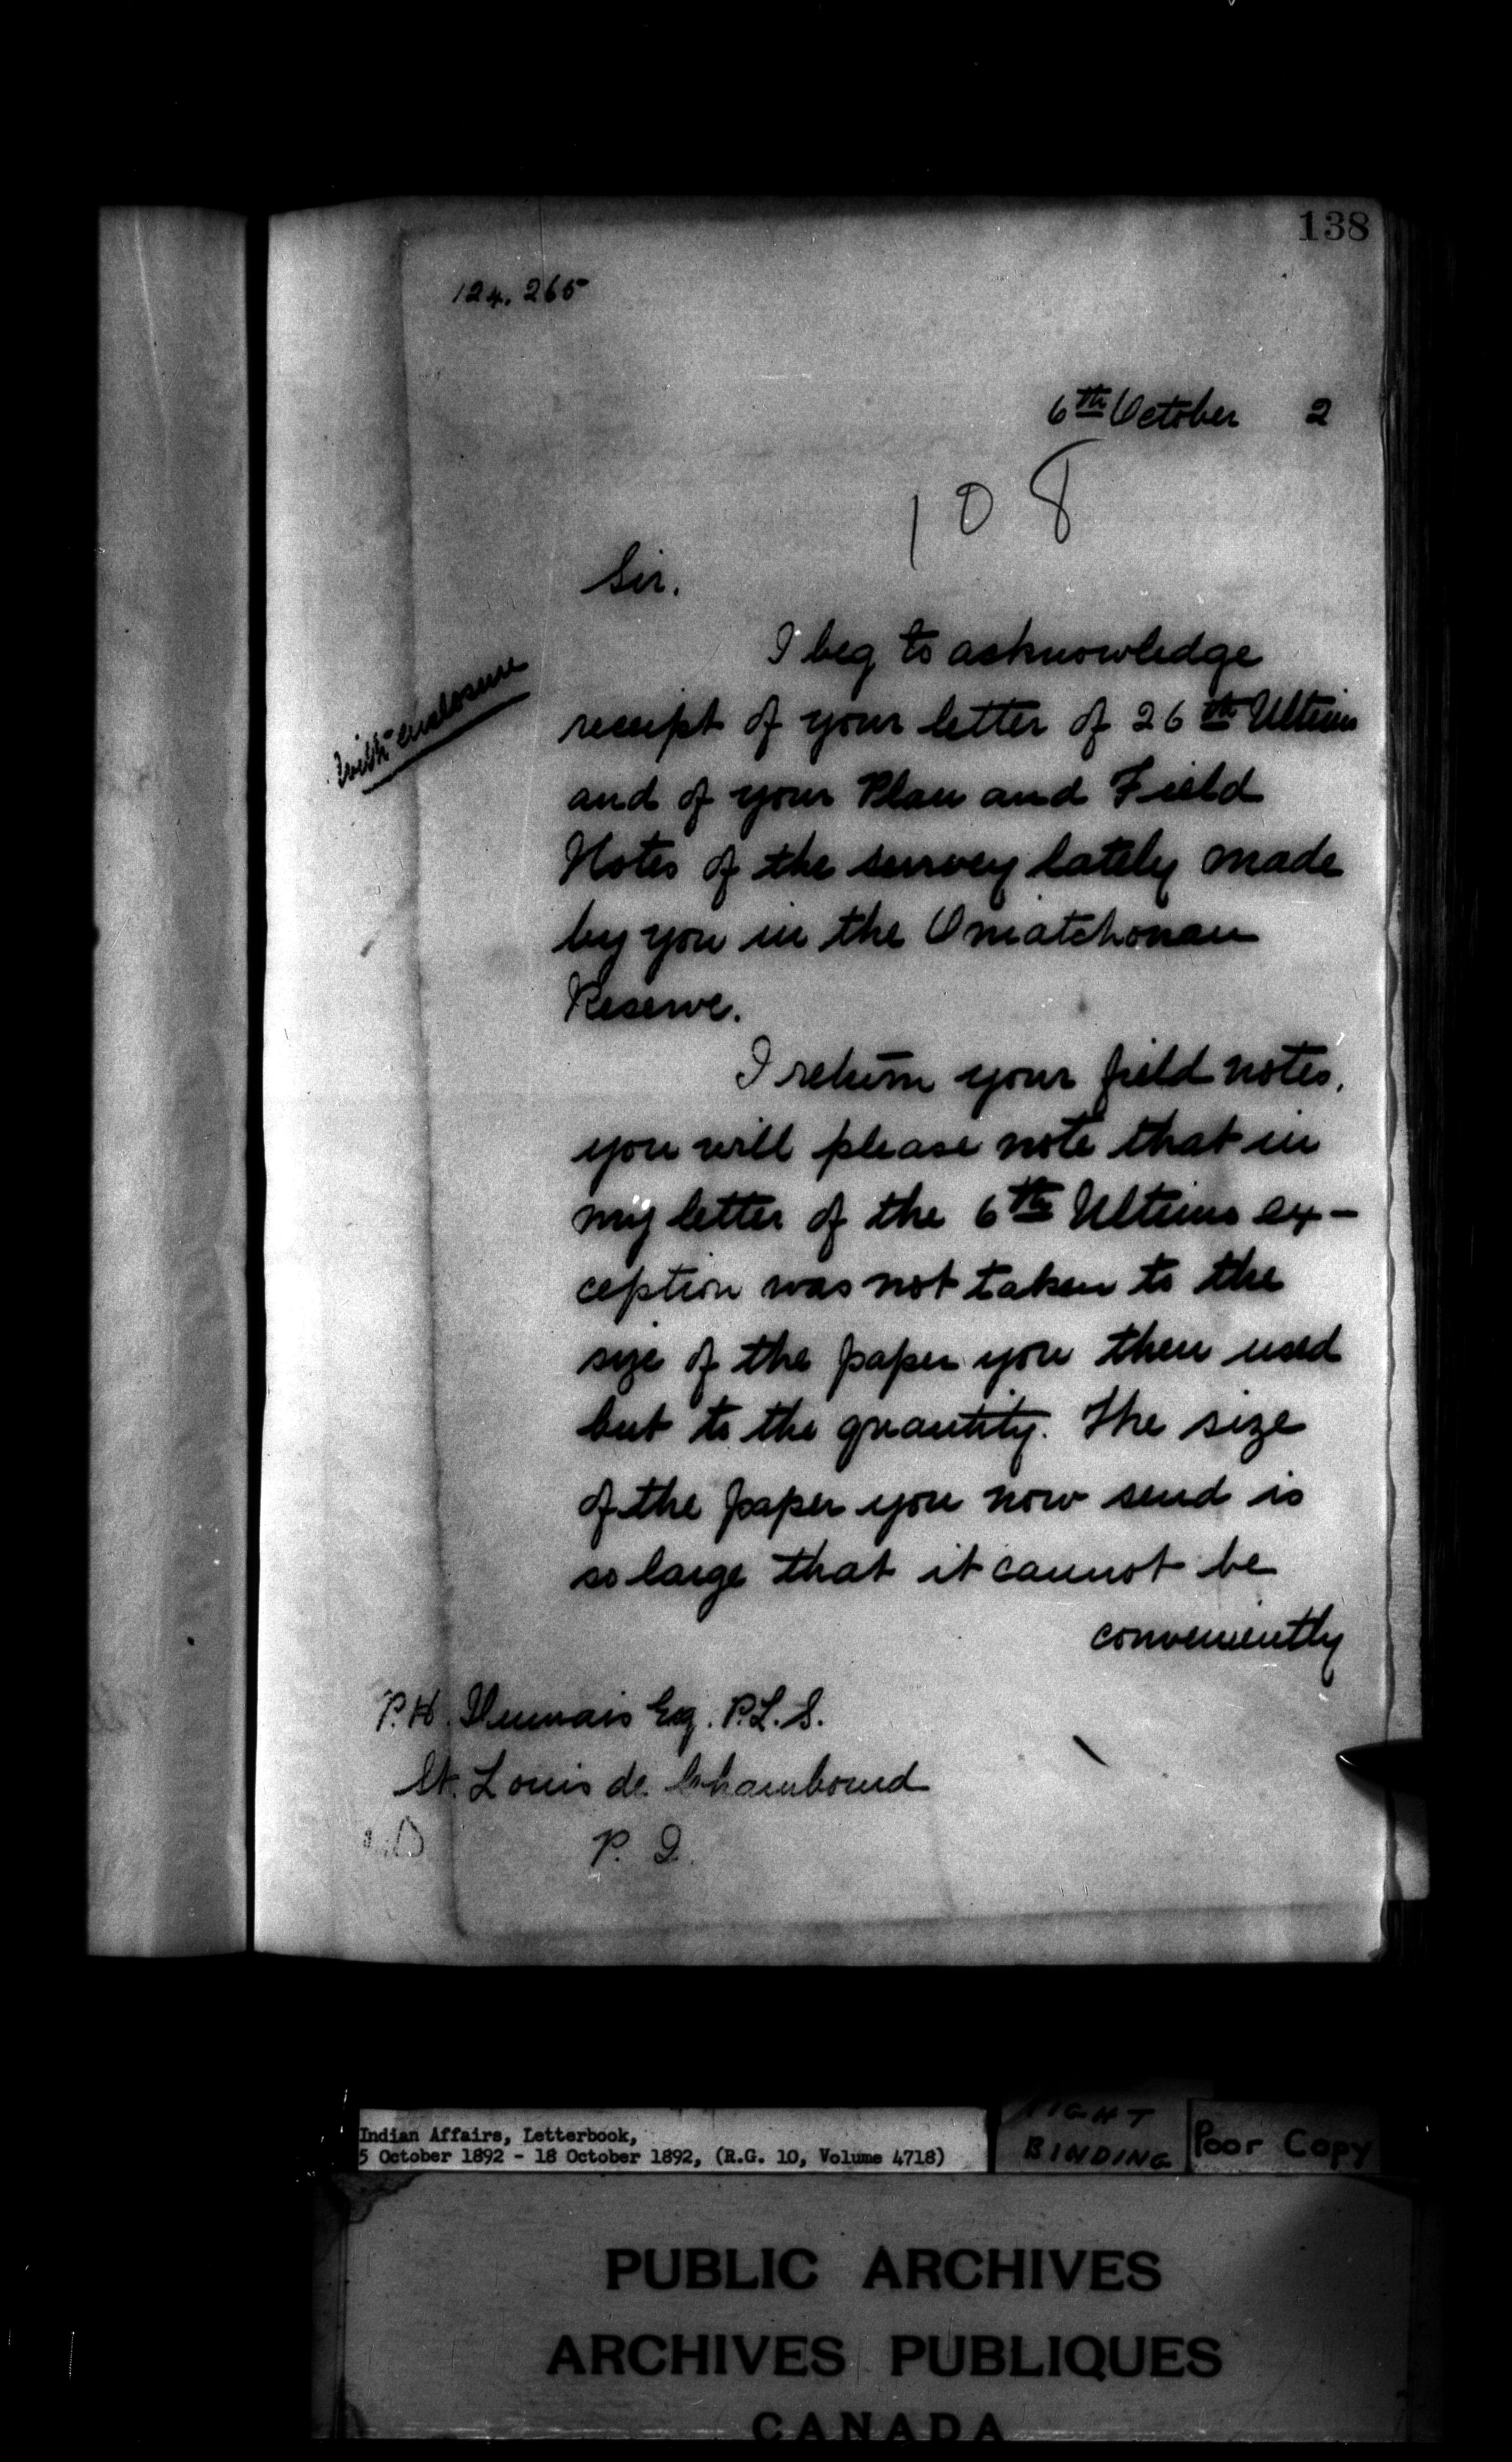 138
124,265
6th October 2
108
Sir.
I beg to acknowledge
with enclosure
receipt of your letter of 26th Ultimo
and of your Plan and Field
Notes of the survey lately made
by you in the Omatchonan
Reserve.
I return your field notes,
you will please note that in
my letter of the 6th Ultimo ex-
ception was not taken to the
size of the paper you then used
but to the quantity. The size
of the paper you now send is
so large that it cannot be
conveniently
P.H. Dumais Esq. P.L.S.
St. Louis de Chambord
P. Q.
Indian Affairs, Letterbook,
5 October 1892 - 18 October 1892, (R.G. 10, Volume 4718)
TIGHT
BINDING
Poor Copy
PUBLIC ARCHIVES
ARCHIVES PUBLIQUES
CANADA